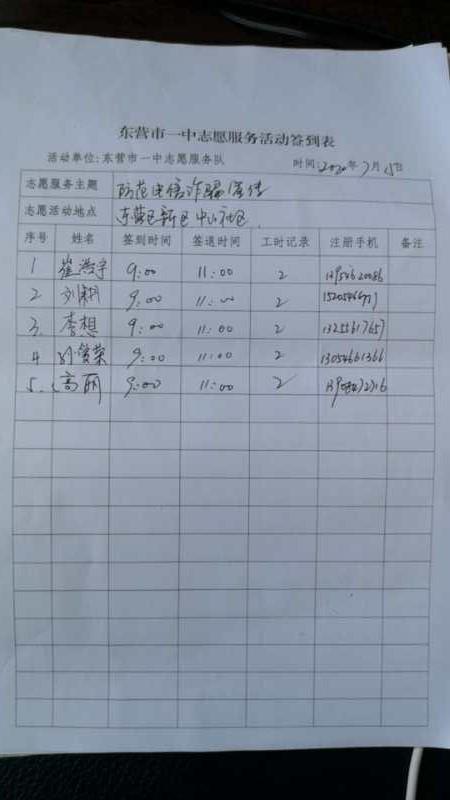 东营市一中志愿服务活动签到表
活动单位:东营市一中志愿服务队 时间:2020年7月15日
志愿服务主题 防范电信诈骗宣传
志愿活动地点 东营区新区中山社区
序号 姓名 签到时间 签退时间 工时记录 注册手机 备注
1 崔浩宇 9:00 11:00 2
2 刘 9:00 11:00 2
3. 李想 9:00 11:00 2
4 孙俊荣 9:00 11:00 2 13054661366
5. 高丽 9:00 11:00 2